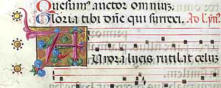 Quesum⁹ auctor omnium,
Gloria tibi dñe qui surrexi, Ad l
Aurora lucis rutilat celus